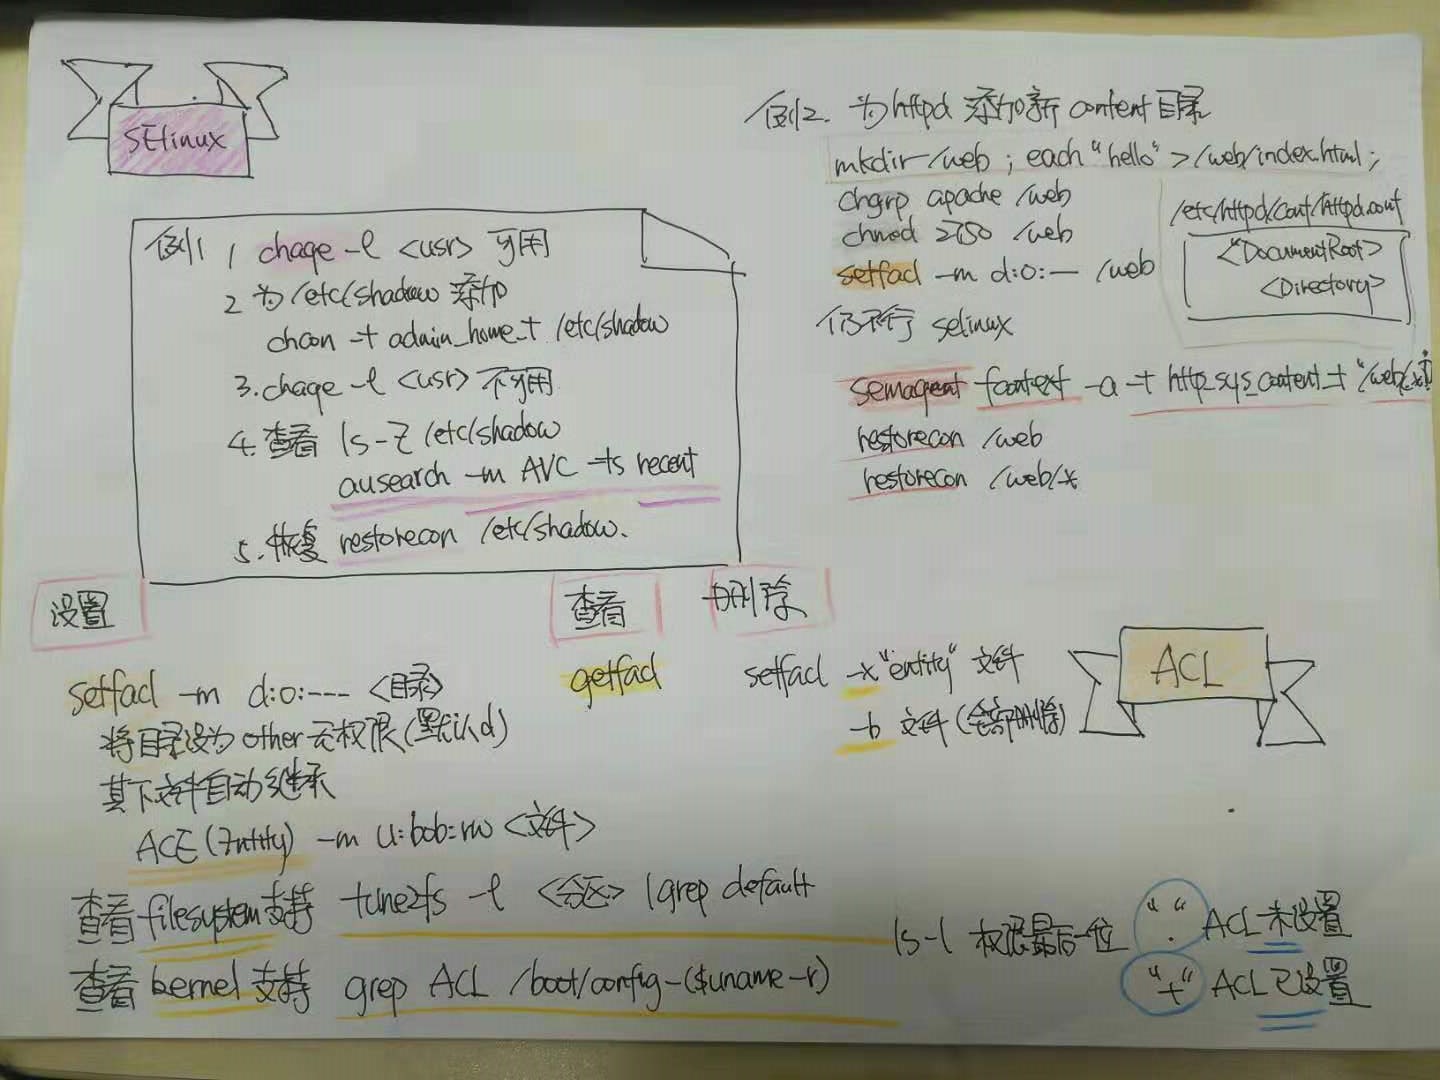 SElinux
例1
1 chage -l <usr> 可用
2 为/etc/shadow 添加
chcon -t admin_home_t /etc/shadow
3. chage -l <usr> 不可用
4. 查看 ls -Z /etc/shadow
ausearch -m AVC -ts recent
5. 恢复 restorecon /etc/shadow.
例2. 为httpd 添加新 content 目录
mkdir /web ; each "hello" > /web/index.html ;
chgrp apache /web
chmod 2750 /web
setfacl -m d:o:— /web
/etc/httpd/conf/httpd.conf
<DocumentRoot>
<Directory>
仍不行 selinux
semagent fcontext -a -t http_sys_content_t
restorecon /web
restorecon /web/*
设置
查看
删除
setfacl -m d:o:--- <目录>
将目录设为 other 无权限(默认d)
其下文件自动继承
ACE (Entity) -m u:bob:rw <文件>
getfacl
setfacl -x "entity" 文件
-b 文件 (全部删除)
ACL
查看 filesystem 支持 tune2fs -l <分区> | grep default
查看 kernel 支持 grep ACL /boot/config-($uname -r)
ls -l 权限最后一位
"." ACL 未设置
"+" ACL 已设置